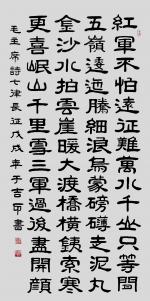 紅軍不怕遠征難萬水千山只等閒
五嶺逶迤騰細浪烏蒙磅礴走泥丸
金沙水拍雲崖暖大渡橋橫鐵索寒
更喜岷山千里雪三軍過後盡開顏
毛主席詩七律長征戊戌年于吉書